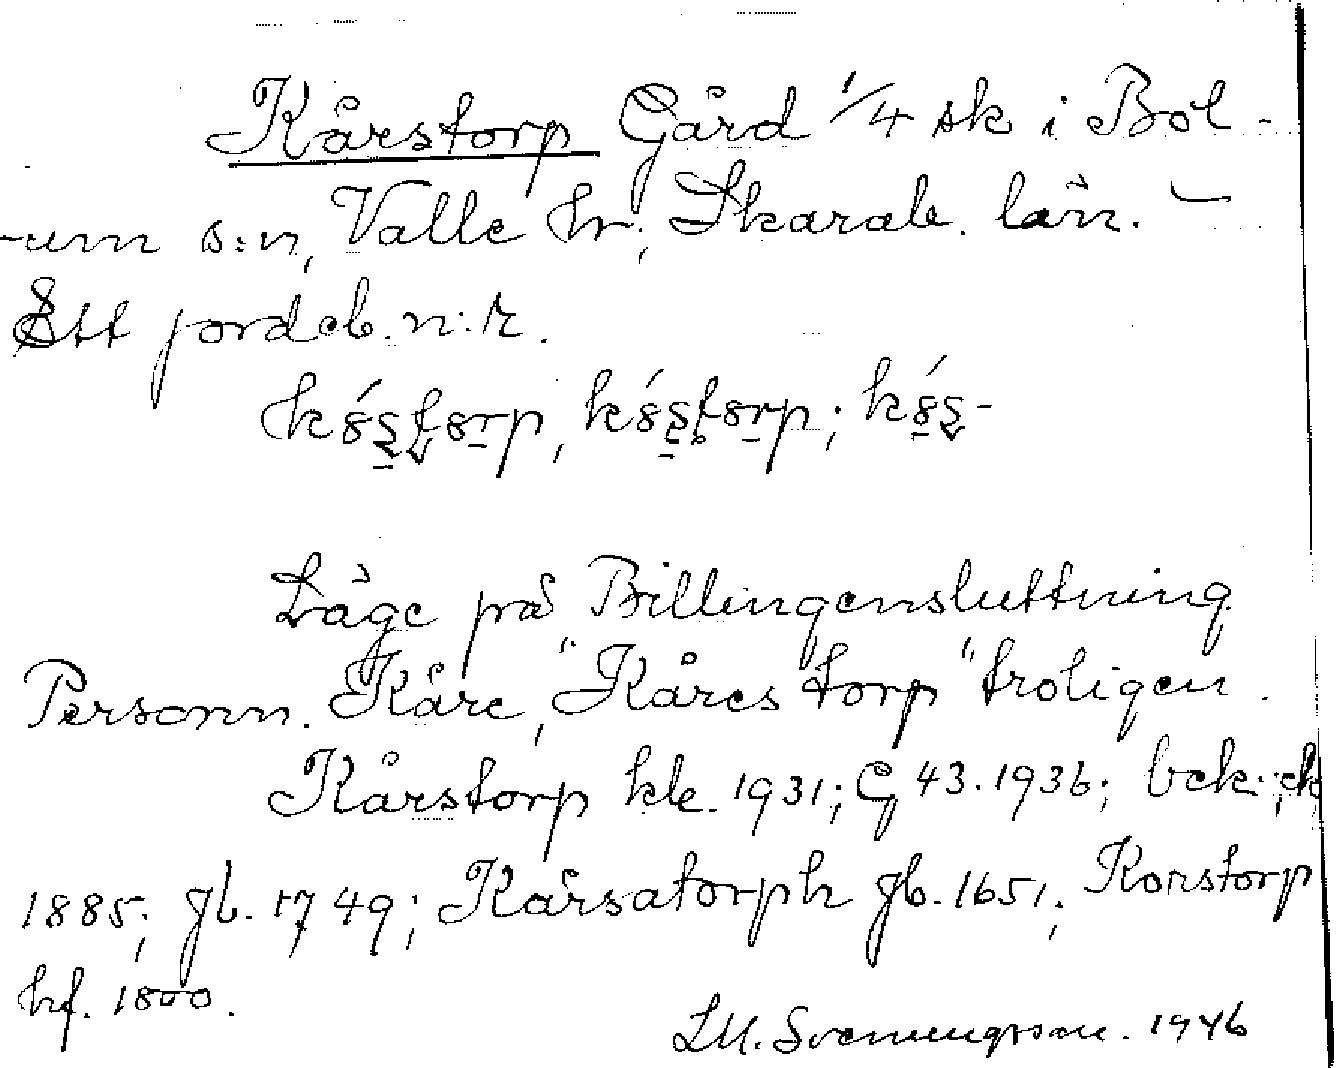 Kårstorp Gård 1/4 sk i Bol-
-um s:n, Valle hr; Skarab. län. –
Ett jordeb. n:r.
Läge på Billingensluttning
Personn. Kåre, "Kåres torp" troligen.
Kårstorp kle. 1931; G 43. 1936; bek:; ek
1885; gb. 1749; Kårsatorph gb. 1651; Korstorp
hf. 1800.
LM. Svenungsson. 1946